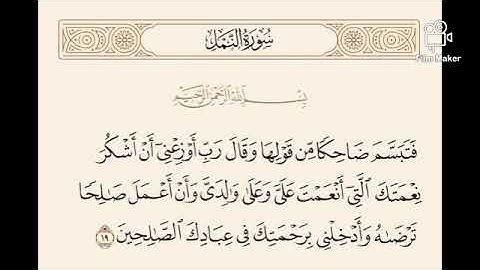 سُورَةُ النَّمْلِ
Film Maker
بِسْمِ اللَّهِ الرَّحْمَٰنِ الرَّحِيمِ
فَتَبَسَّمَ ضَاحِكًا مِّن قَوْلِهَا وَقَالَ رَبِّ أَوْزِعْنِي أَنْ أَشْكُرَ
نِعْمَتَكَ الَّتِي أَنْعَمْتَ عَلَيَّ وَعَلَىٰ وَالِدَيَّ وَأَنْ أَعْمَلَ صَالِحًا
تَرْضَاهُ وَأَدْخِلْنِي بِرَحْمَتِكَ فِي عِبَادِكَ الصَّالِحِينَ ١٩